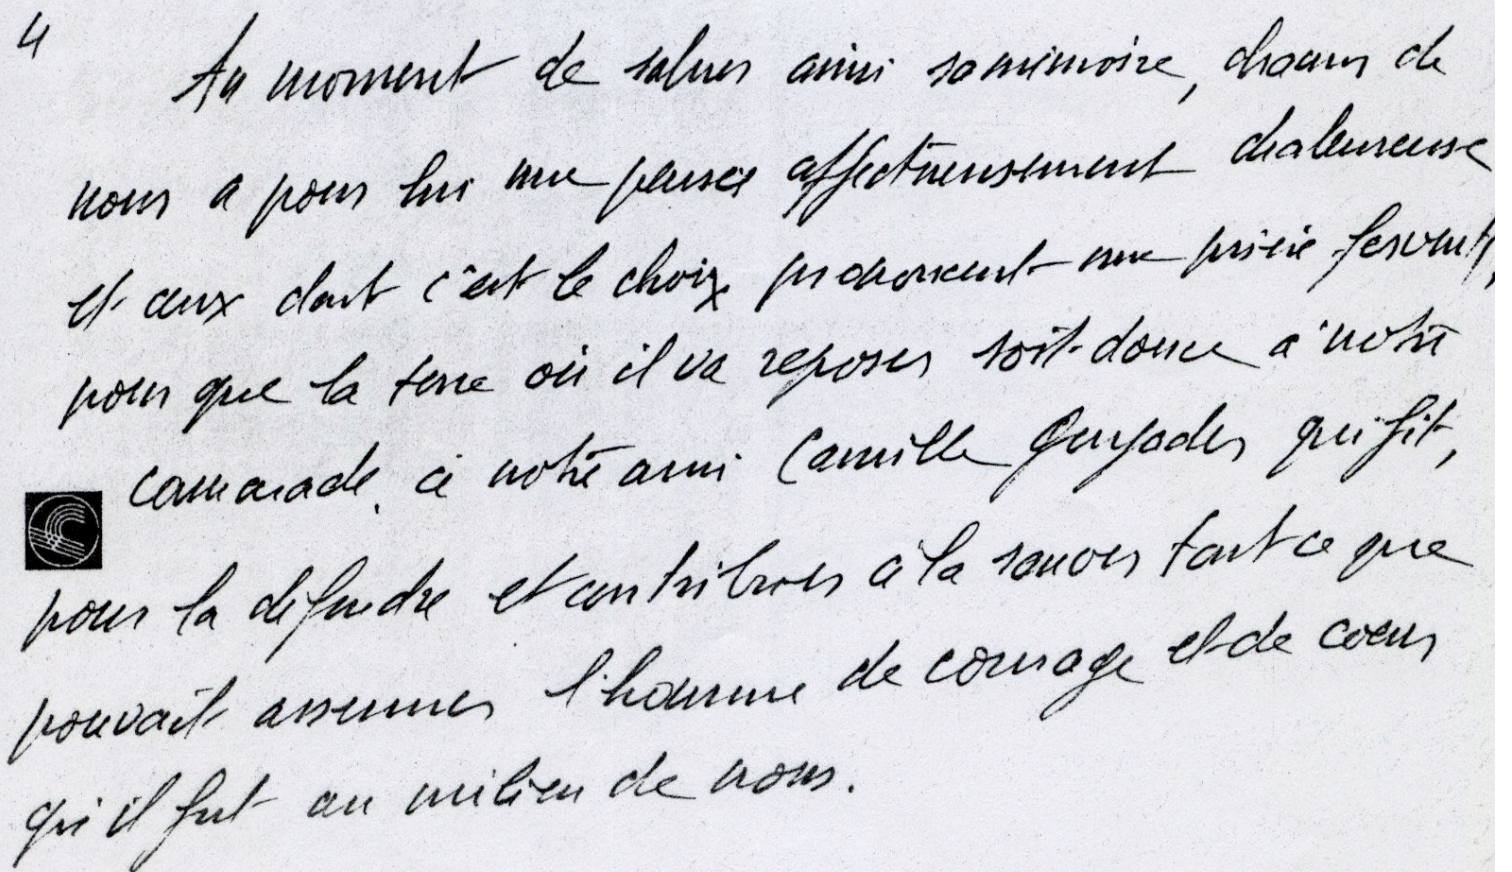 4
Au moment de saluer ainsi sa mémoire, chacun de
nous a pour lui une pensée affectueusement chaleureuse
et ceux dont c'est le choix prononcent une prière fervente,
pour que la terre où il va reposer soit douce à notre
camarade, à notre ami Camille
qui fit,
pour la défendre et contribuer à la sauver tout ce que
pouvait assumer l'homme de courage et de coeur
qu'il fut au milieu de nous.